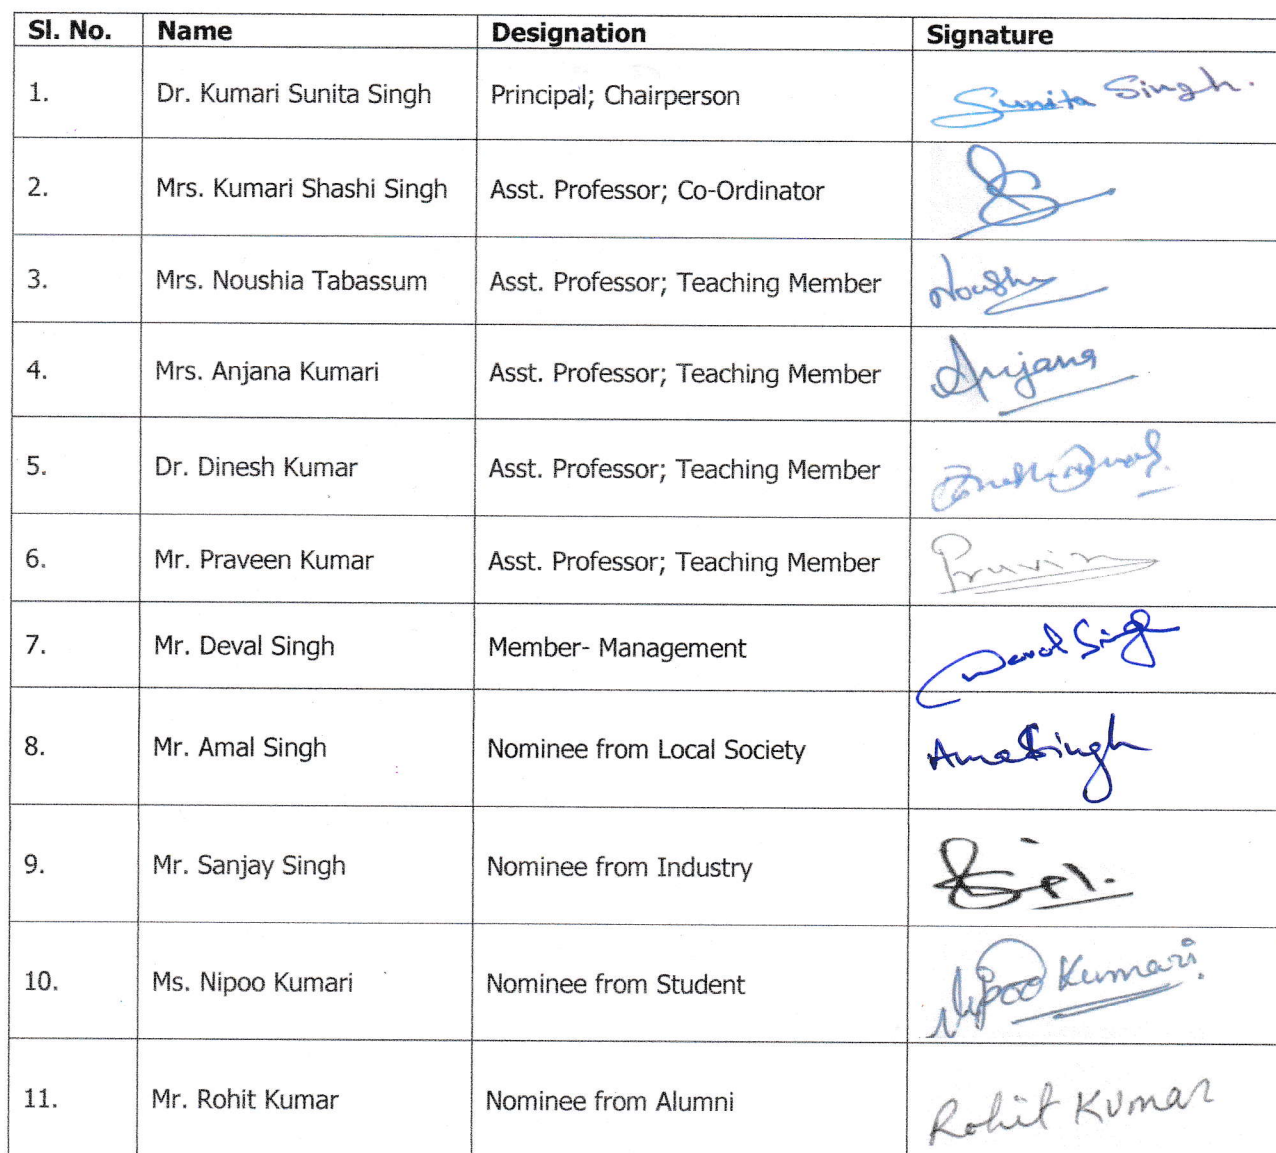 Sl. No. Name Designation Signature
1. Dr. Kumari Sunita Singh Principal; Chairperson Sunita Singh.
2. Mrs. Kumari Shashi Singh Asst. Professor; Co-Ordinator
3. Mrs. Noushia Tabassum Asst. Professor; Teaching Member
4. Mrs. Anjana Kumari Asst. Professor; Teaching Member Anjana
5. Dr. Dinesh Kumar Asst. Professor; Teaching Member
6. Mr. Praveen Kumar Asst. Professor; Teaching Member Pravin
7. Mr. Deval Singh Member- Management Deval Singh
8. Mr. Amal Singh Nominee from Local Society Amal Singh
9. Mr. Sanjay Singh Nominee from Industry
10. Ms. Nipoo Kumari Nominee from Student Nipoo Kumari.
11. Mr. Rohit Kumar Nominee from Alumni Rohit Kumar